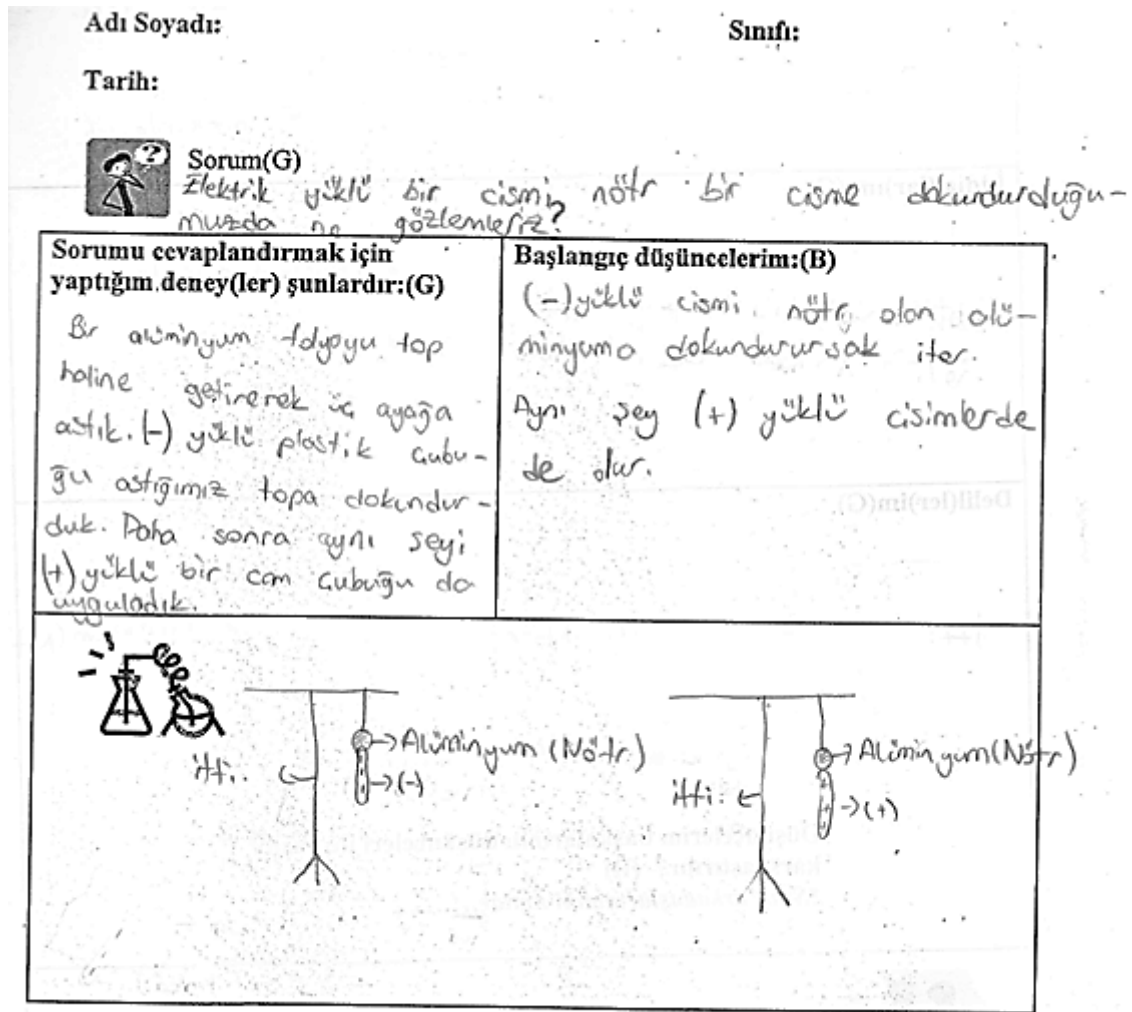 Adı Soyadı:
Sınıfı:
Tarih:
?
Sorum(G)
Elektrik yüklü bir cismi nötr bir cisme dokundurduğu-
muzda ne gözlemleriz?
Sorumu cevaplandırmak için
yaptığım deney(ler) şunlardır:(G)
Bir alüminyum folyoyu top
haline getirerek üç ayağa
astık. (-) yüklü plastik çubu-
ğu astığımız topa dokundur-
duk. Daha sonra aynı şeyi
(+) yüklü bir cam çubuğu da
uyguladık.
Başlangıç düşüncelerim:(B)
(-) yüklü cismi nötr olan alü-
minyuma dokundurursak iter.
Aynı şey (+) yüklü cisimlerde
de olur.
itti.
Alüminyum (Nötr)
(-)
itti.
Alüminyum (Nötr)
(+)
Delil(ler)im(G)